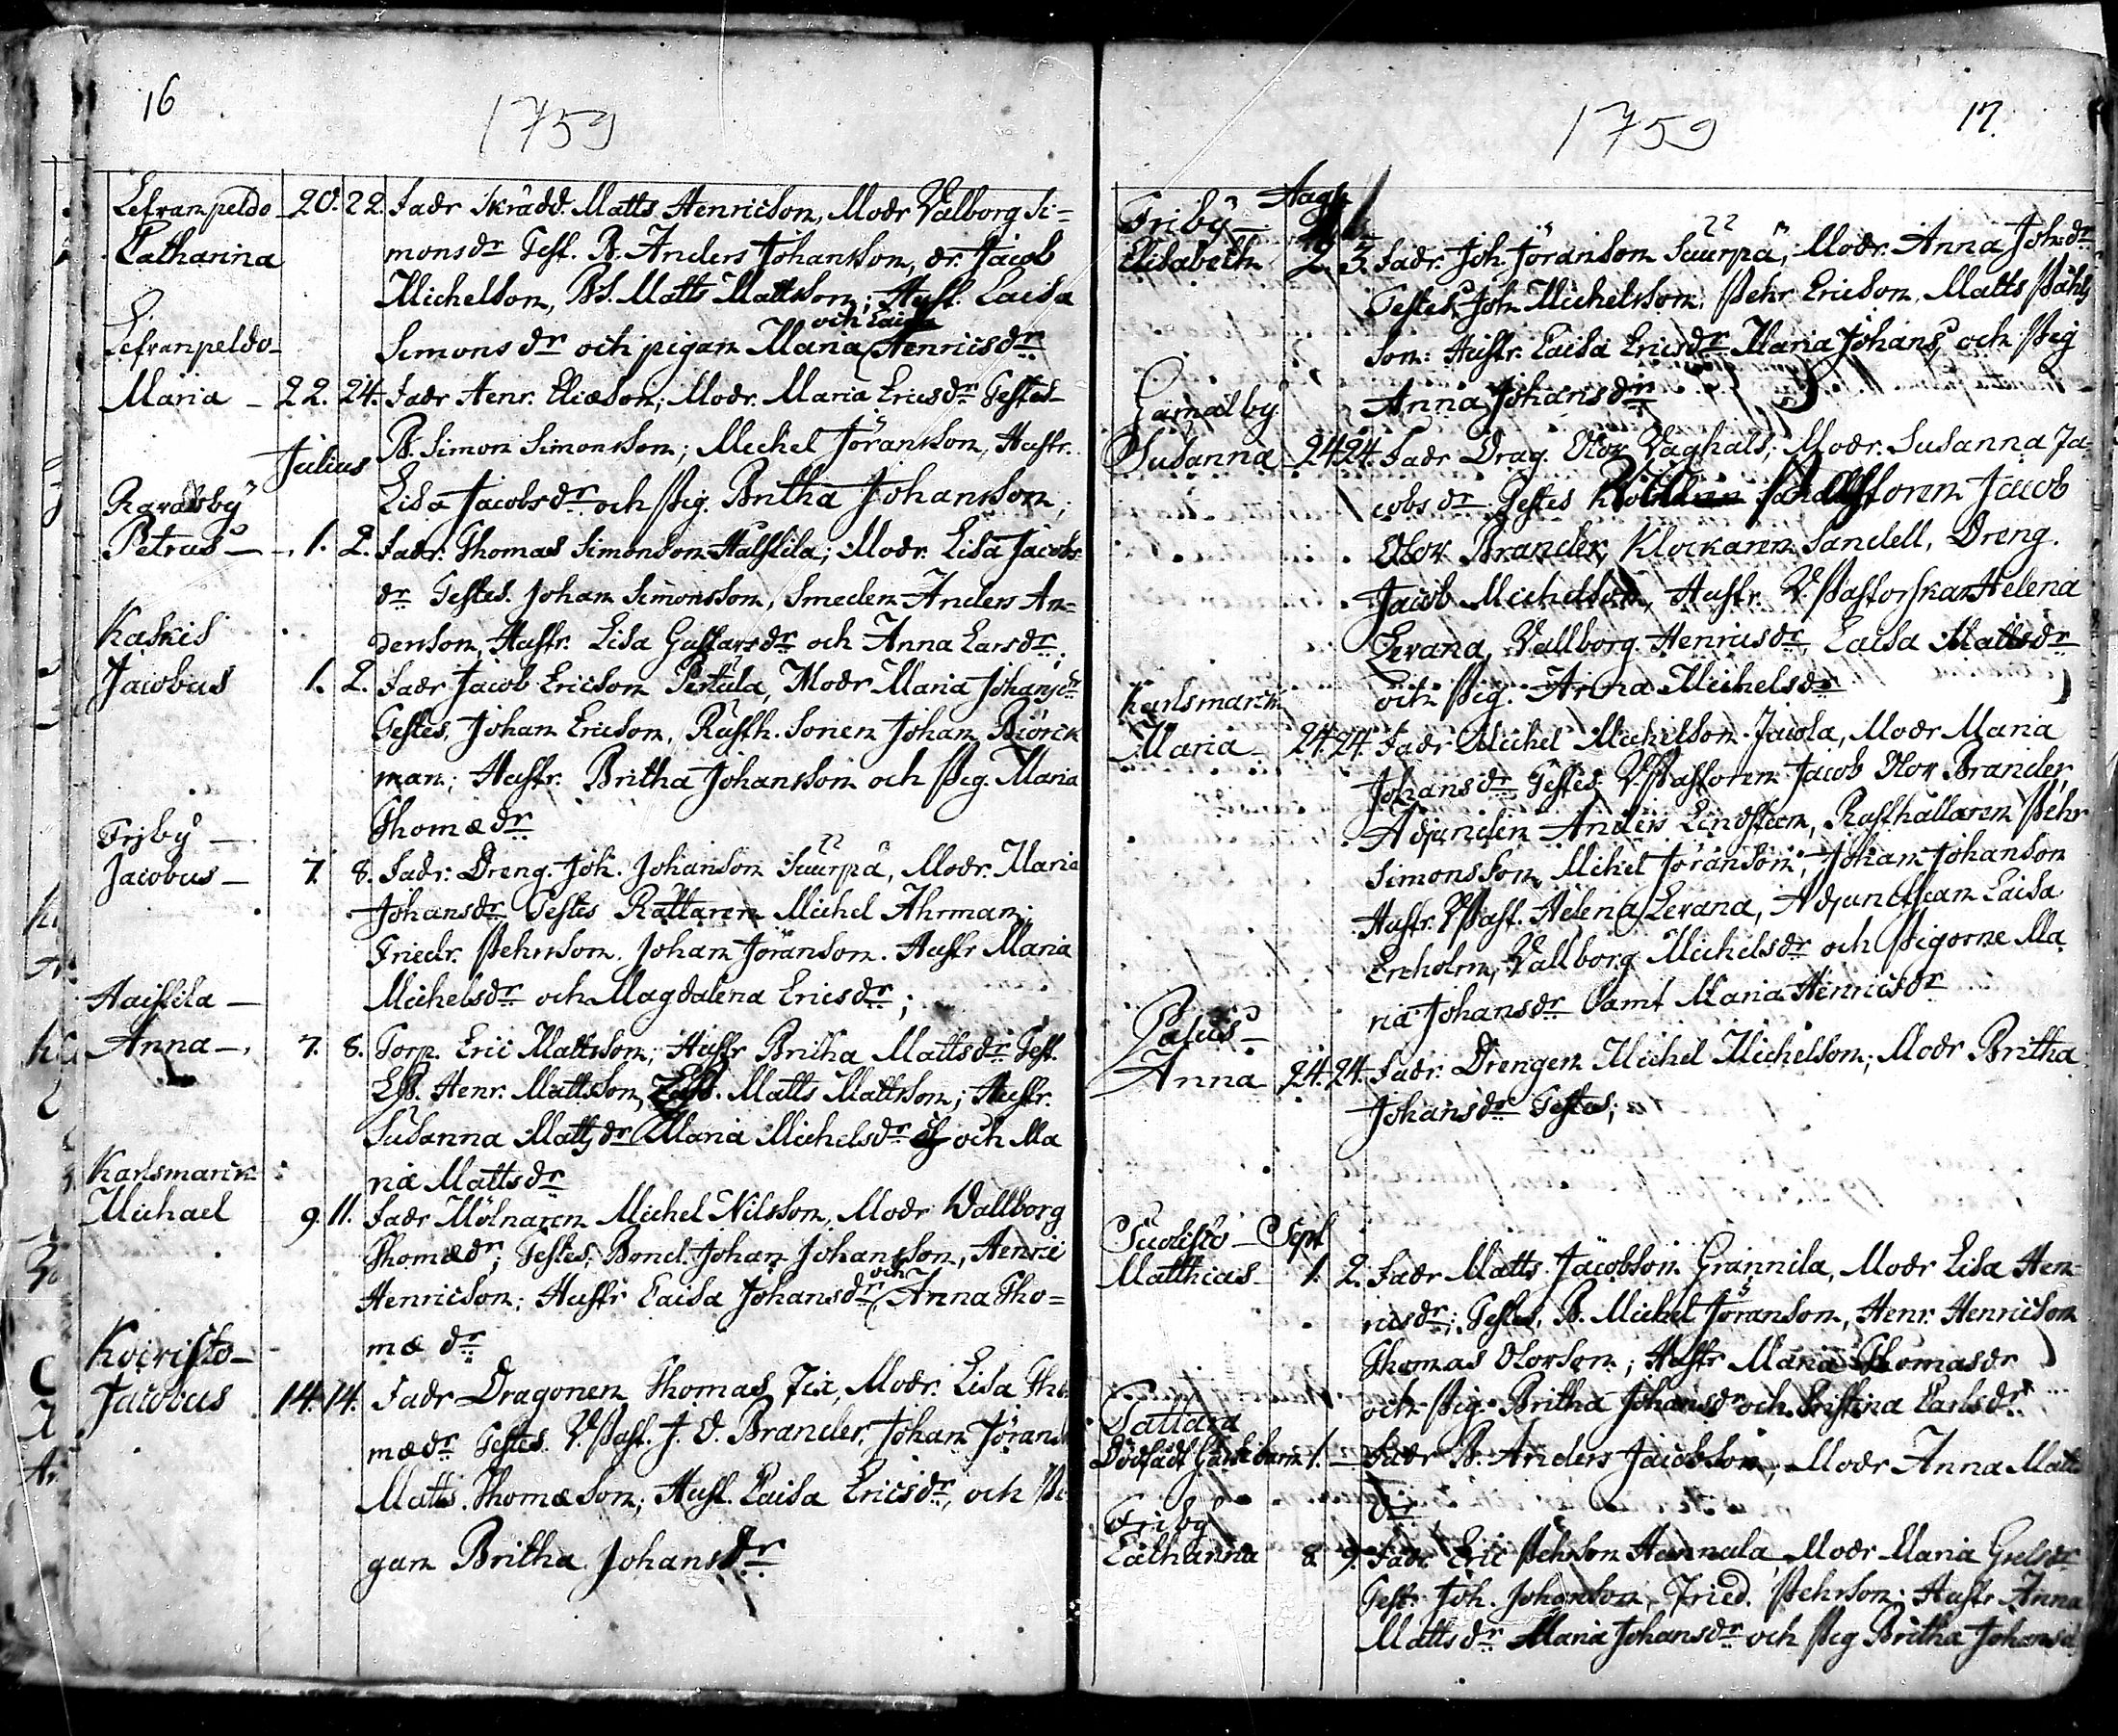 16
1759
Lefvanpeldo 20. 22. Fadr Skrädd. Matts Henricson, Modr Valborg Si=
Catharina monsdr Test. B. Anders Johansson, dr. Jacob
Michelson, BS. Matts Mattsson; Hust. Caisa
och Caisa
Lefvanpeldo Simonsdr och pigan Maria Henricsdr
Maria - 22. 24. Fadr Henr. Eliæson; Modr. Maria Ericsdr Testes
B. Simon Simonsson; Michel Jöransson, Hustr.
Julius
Lisa Jacobsdr och Pig. Britha Johansson;
Petrus - 1. 2. Fadr. Thomas Simonson Hasstila; Modr. Lisa Jacobs
dr Testes. Johan Simonsson, Smeden Anders An=
Kaskis derson, Hustr. Lisa Gustavsdr och Anna Larsdr.
Jacobus 1. 2. Fadr Jacob Ericson Pertula, Modr Maria Johansdr
Testes, Johan Ericson, Rusth. Sonen Johan Biörck
man; Hustr. Britha Johansson och Pig. Maria
Thomædr
Friby -
Jacobus - 7. 8. Fadr. Dreng. Joh. Johanson Suurpä, Modr. Maria
Johansdr Testes Rättaren Michel Ahrman;
Friedr. Pehrson. Johan Jöranson. Hustr Maria
Michelsdr och Magdalena Ericsdr;
Haistila -
Anna -. 7. 8. Torp. Eric Mattsson; Hustr Britha Mattsdr Test.
Henr. Mattsson, Matts Mattsson; Hustr.
Susanna Mattsdr Maria Michelsdr och Ma
Karlsmarck ria Mattsdr
Michael 9. 11. Fadr Mölnaren Michel Nilsson, Modr Wallborg
Thomædr; Testes; Bond. Johan Johansson, Henric
och
Henricson; Hustr Caisa Johansdr Anna Tho=
mædr
Koivisto -
Jacobus 14. 14. Fadr Dragonen Thomas Modr. Lisa Tho
mædr Testes V.Past. J. O. Brander, Johan Jörans
Matts Thomæson; Hust. Caisa Ericsdr, och Pi
gan Britha Johansdr
1759
17.
Friby -
Elisabeth 2. 3. Fadr. Joh. Jöranson Suurpä; Modr. Anna Johsdr
Testes, Joh Michelsson, Pehr Ericson, Matts Påhls
son: Hustr. Caisa Ericsdr Maria Johans och Pig
Anna Johansdr
Gamalby
Susanna 24 24. Fadr Drag. Olov Vaghals; Modr. Susanna Ja=
cobsdr Testes Jacob
Olov Brander, Klockaren Sandell, Dreng.
Jacob Michelson, Hustr. V.Pastorskan Helena
Levana, Vallborg Henricsdr, Caisa Mattsdr
och Pig. Anna Michelsdr
Karlsmarck
Maria 24. 24 Fadr Michel Michelson Jacola, Modr Maria
Johansdr Testes V.Pastoren Jacob Olov Brander,
Adjuncten Anders Rusthållaren Pehr
Simonsson, Michel Jöranson; Johan Johanson
Hustr. VPast. Helena Levana, Adjunctscan Caisa
Enholm, Vallborg Michelsdr och Pigorne Ma
ria Johansdr Samt Maria Henricsdr
Palus -
Anna 24. 24. Fadr. Drengen Michel Michelsson; Modr Britha
Johansdr Testes;
Sept
Matthias 1. 2. Fadr Matts Jacobson Grannila, Modr Lisa Hen=
ricsdr; Testes, B. Michel Jöranson, Henr. Henricson
Thomas Olovson; Hustr Maria Thomasdr
och Pig. Britha Johansdr och Cristina Carlsdr
Tattara
Dödfödt Gåsse barn 1. - Fadr B. Anders Jacobson, Modr Anna Matts
dr
Friby
Catharina 8 9. Fadr Eric Pehrson Hannula, Modr Maria Grelsdr
Test. Joh. Johanson, Fried. Pehrson; Hustr Anna
Mattsdr Maria Johansdr och Pig Britha Johansd